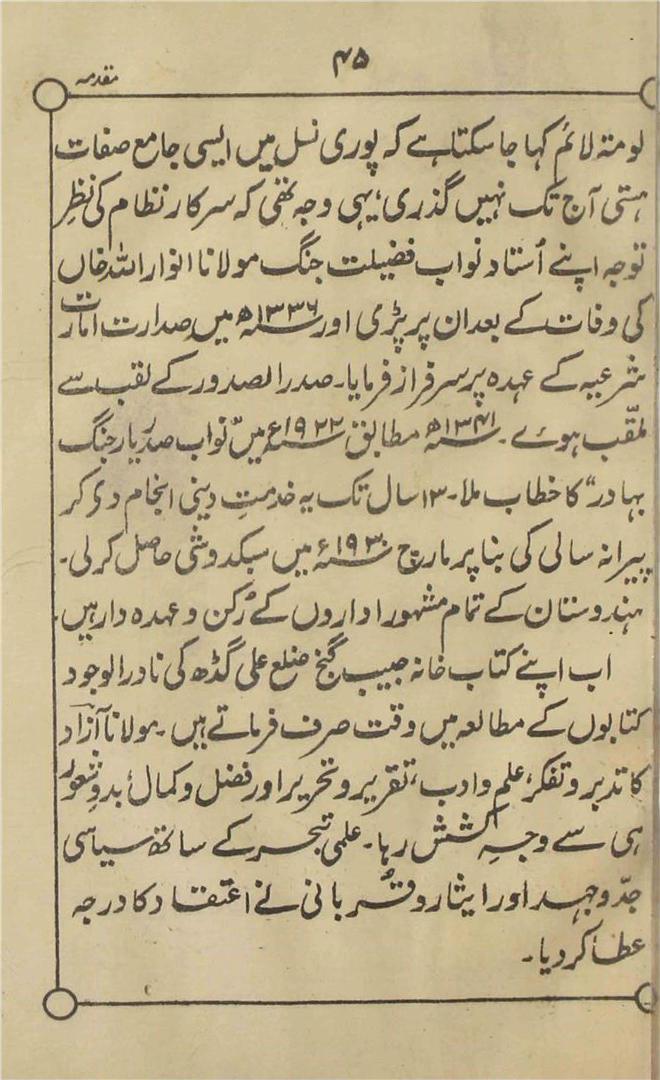 ۴۵
مقدمہ
لومۃ لائم کہا جا سکتا ہے کہ پوری نسل میں ایسی جامع صفات
ہستی آج تک نہیں گذری، یہی وجہ تھی کہ سرکار نظام کی نظرِ
توجہ اپنے اُستاد نواب فضیلت جنگ مولانا انوار اللہ خاں
کی وفات کے بعد ان پر پڑی اور ۱۳۳۶ھ میں صدارت امارت
شرعیہ کے عہدہ پر سرفراز فرمایا۔ صدر الصدور کے لقب سے
ملقّب ہوئے۔ ۱۳۴۱ھ مطابق ۱۹۲۲ء میں "نواب صدر یار جنگ
بہادر" کا خطاب ملا۔ ۱۳ سال تک یہ خدمتِ دینی انجام دی کر
پیرانہ سالی کی بنا پر مارچ ۱۹۳۰ء میں سبکدوشی حاصل کرلی۔
ہندوستان کے تمام مشہور اداروں کے رُکن و عہدہ دار ہیں۔
اب اپنے کتاب خانہ حبیب گنج ضلع علی گڈھ کی نادر الوجود
کتابوں کے مطالعہ میں وقت صرف فرماتے ہیں۔ مولانا آزاد
کا تدبر و تفکر، علم و ادب، تقریر و تحریر اور فضل و کمال، بدوِ شعور
ہی سے وجہِ کشش رہا۔ علمی تبحر کے ساتھ سیاسی
جدّ و جہد اور ایثار و قربانی نے اعتقاد کا درجہ
عطا کر دیا۔